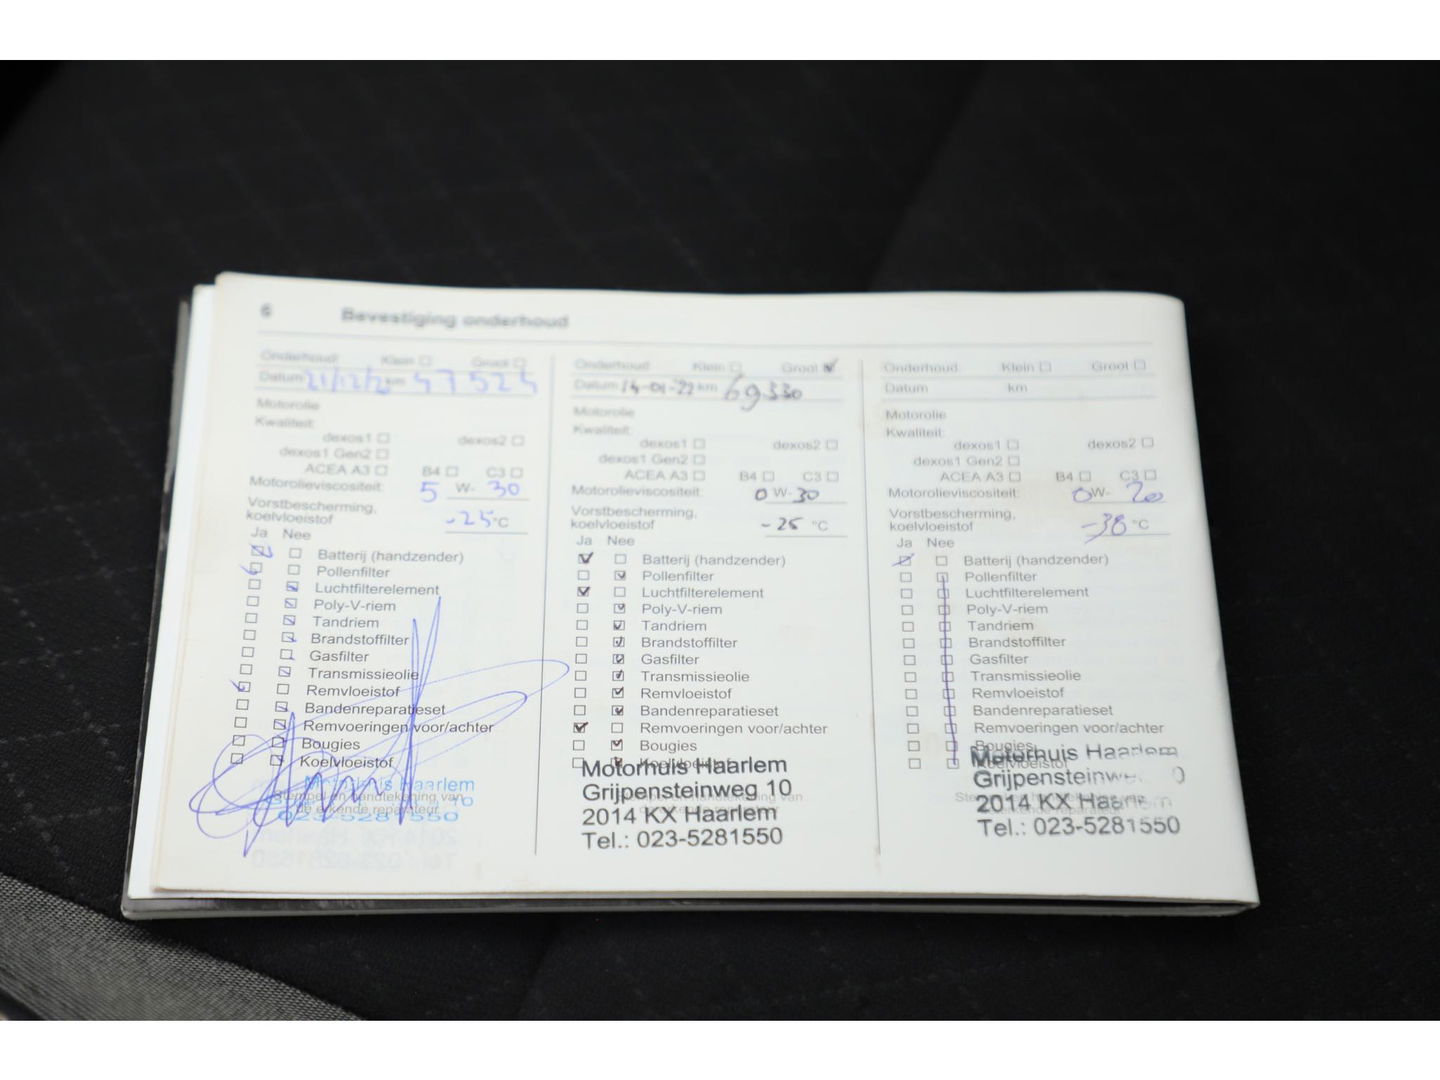 6 Bevestiging onderhoud
Onderhoud: Klein Groot
Datum 21/12/2 km 47525
Motorolie
Kwaliteit:
dexos1 dexos2
dexos1 Gen2
ACEA A3 B4 C3
Motorolieviscositeit: 5 W- 30
Vorstbescherming,
koelvloeistof -25 °C
Ja Nee
Batterij (handzender)
Pollenfilter
Luchtfilterelement
Poly-V-riem
Tandriem
Brandstoffilter
Gasfilter
Transmissieolie
Remvloeistof
Bandenreparatieset
Remvoeringen voor/achter
Bougies
Koelvloeistof
Motorhuis Haarlem
Stempel en handtekening van
de erkende reparateur
023-5281550
Onderhoud: Klein Groot
Datum 14-01-22 km 69330
Motorolie
Kwaliteit:
dexos1 dexos2
dexos1 Gen2
ACEA A3 B4 C3
Motorolieviscositeit: 0 W- 30
Vorstbescherming,
koelvloeistof -25 °C
Ja Nee
Batterij (handzender)
Pollenfilter
Luchtfilterelement
Poly-V-riem
Tandriem
Brandstoffilter
Gasfilter
Transmissieolie
Remvloeistof
Bandenreparatieset
Remvoeringen voor/achter
Bougies
Koelvloeistof
Motorhuis Haarlem
Grijpensteinweg 10
2014 KX Haarlem
Tel.: 023-5281550
Onderhoud: Klein Groot
Datum km
Motorolie
Kwaliteit:
dexos1 dexos2
dexos1 Gen2
ACEA A3 B4 C3
Motorolieviscositeit: 0W- 20
Vorstbescherming,
koelvloeistof -38 °C
Ja Nee
Batterij (handzender)
Pollenfilter
Luchtfilterelement
Poly-V-riem
Tandriem
Brandstoffilter
Gasfilter
Transmissieolie
Remvloeistof
Bandenreparatieset
Remvoeringen voor/achter
Bougies
Koelvloeistof
Motorhuis Haarlem
Grijpensteinw
2014 KX Haarlem
Tel.: 023-5281550